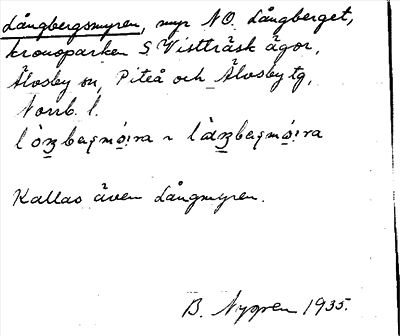 Långbergsmyren, myr NO. Långberget,
kronoparken S Vistträsk ägor,
Älvsby sn, Piteå och Älvsby tg,
Norrb. l.
Kallas även Långmyren.
B. Nygren 1935.